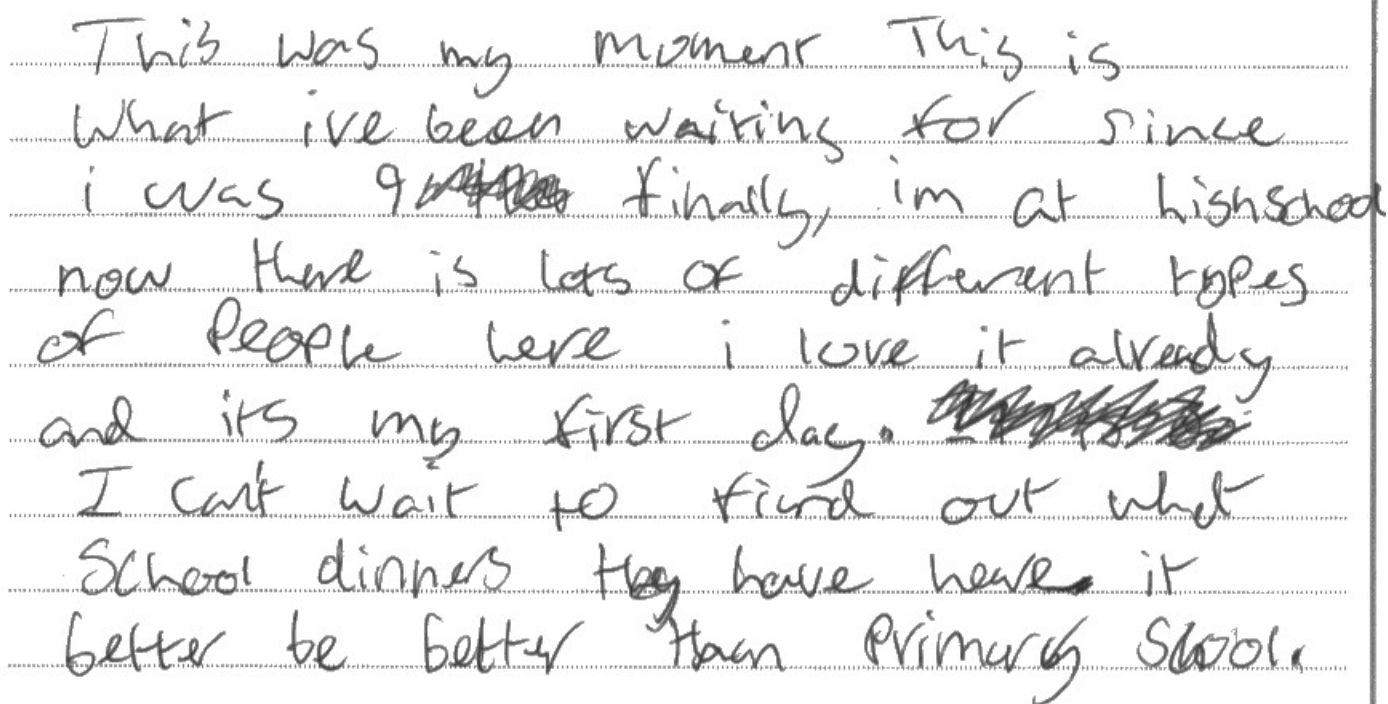 This was my moment This is
What ive been waiting for since
i was 9 finally, im at highschool
now there is lots of different types
of People here i love it already
and its my first day.
I can't wait to find out what
School dinners they have here it
better be better than Primary School.